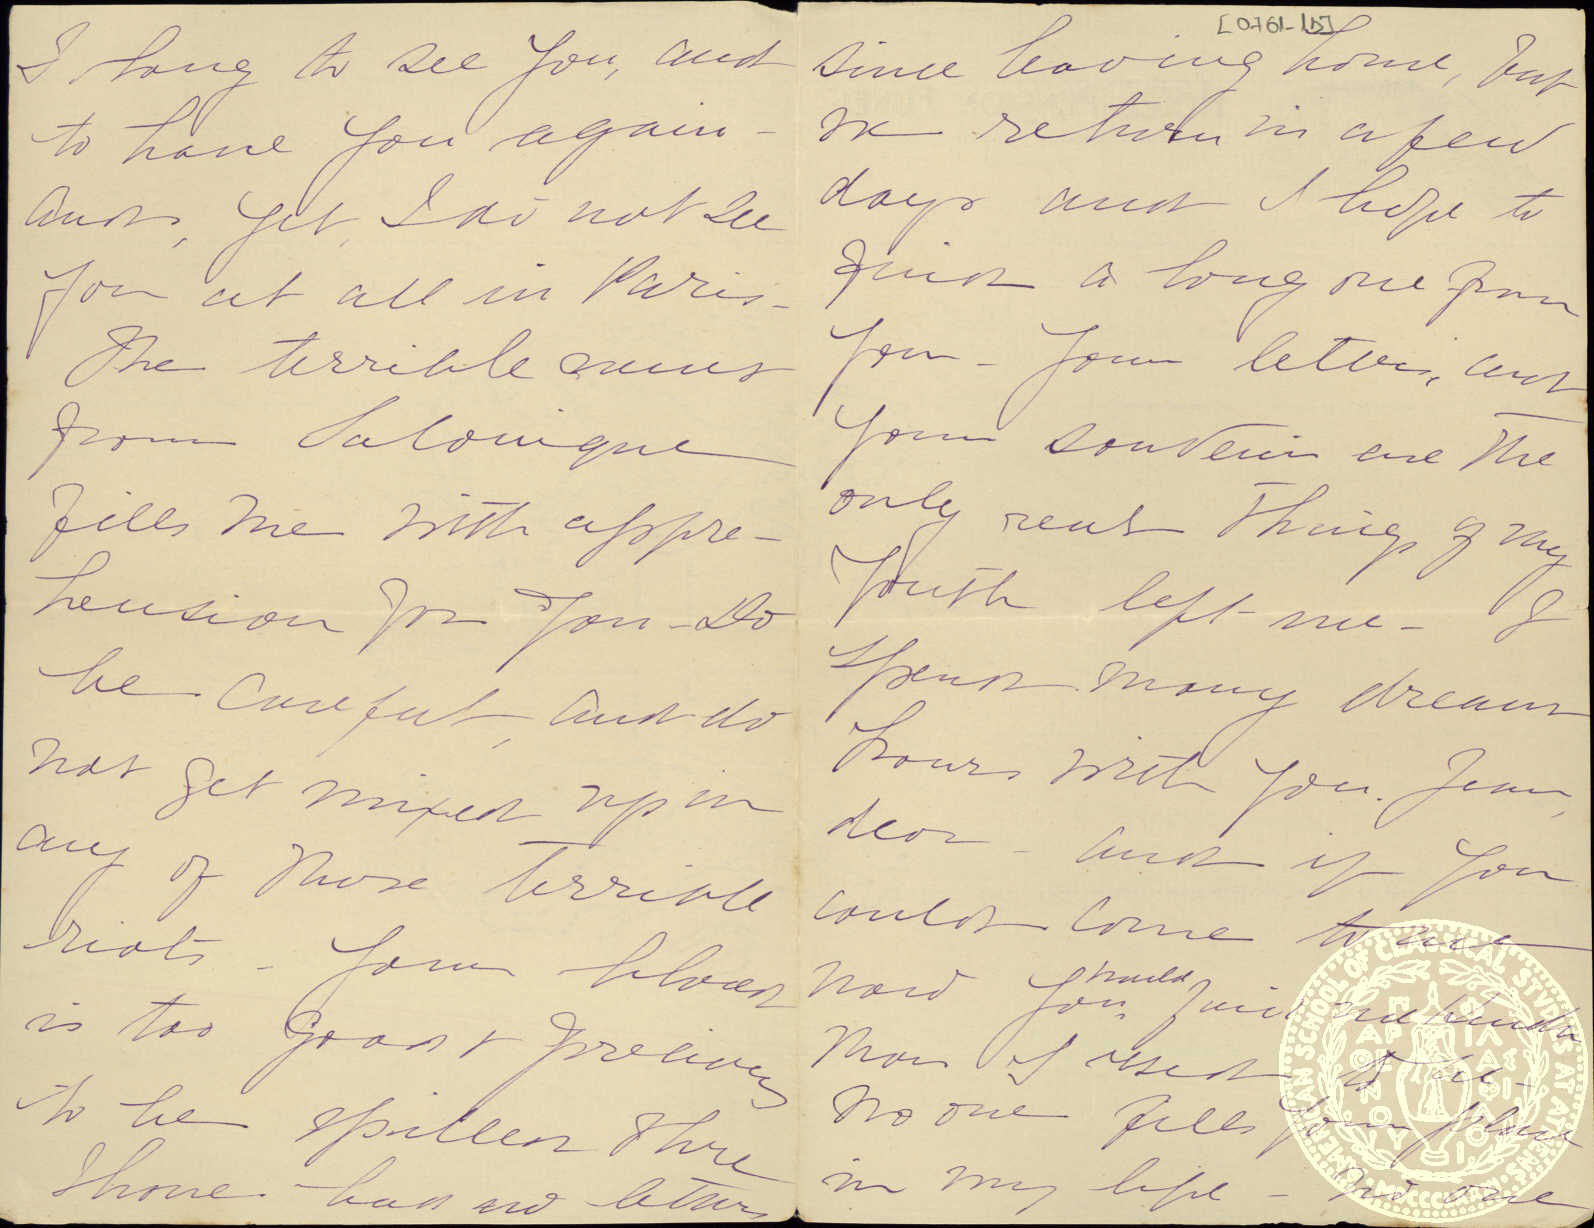 I long to see you, and
to have you again -
and, yet, I do not see
you at all in Paris -
The terrible news
from Salonique
fills me with appre-
hension for you - Do
be careful, and do
not get mixed up in
any of those terrible
riots - Your blood
is too good & precious
to be spilled there
I have had no letters
[0761-15]
since leaving home, but
we return in a few
days and I hope to
find a long one from
you - Your letters, and
your souvenir are the
only real things of my
youth left me - I
spend many dream
hours with you. Jean,
dear - and if you
could come to me
now you would find me kinder
than I used to be -
No one fills your place
in my life - no one
AMERICAN SCHOOL OF CLASSICAL STVDIES AT ATHENS
MDCCCLXXXI